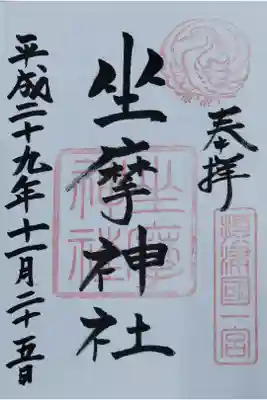 奉拝
摂津國一宮
坐摩神社
平成二十九年十一月二十五日